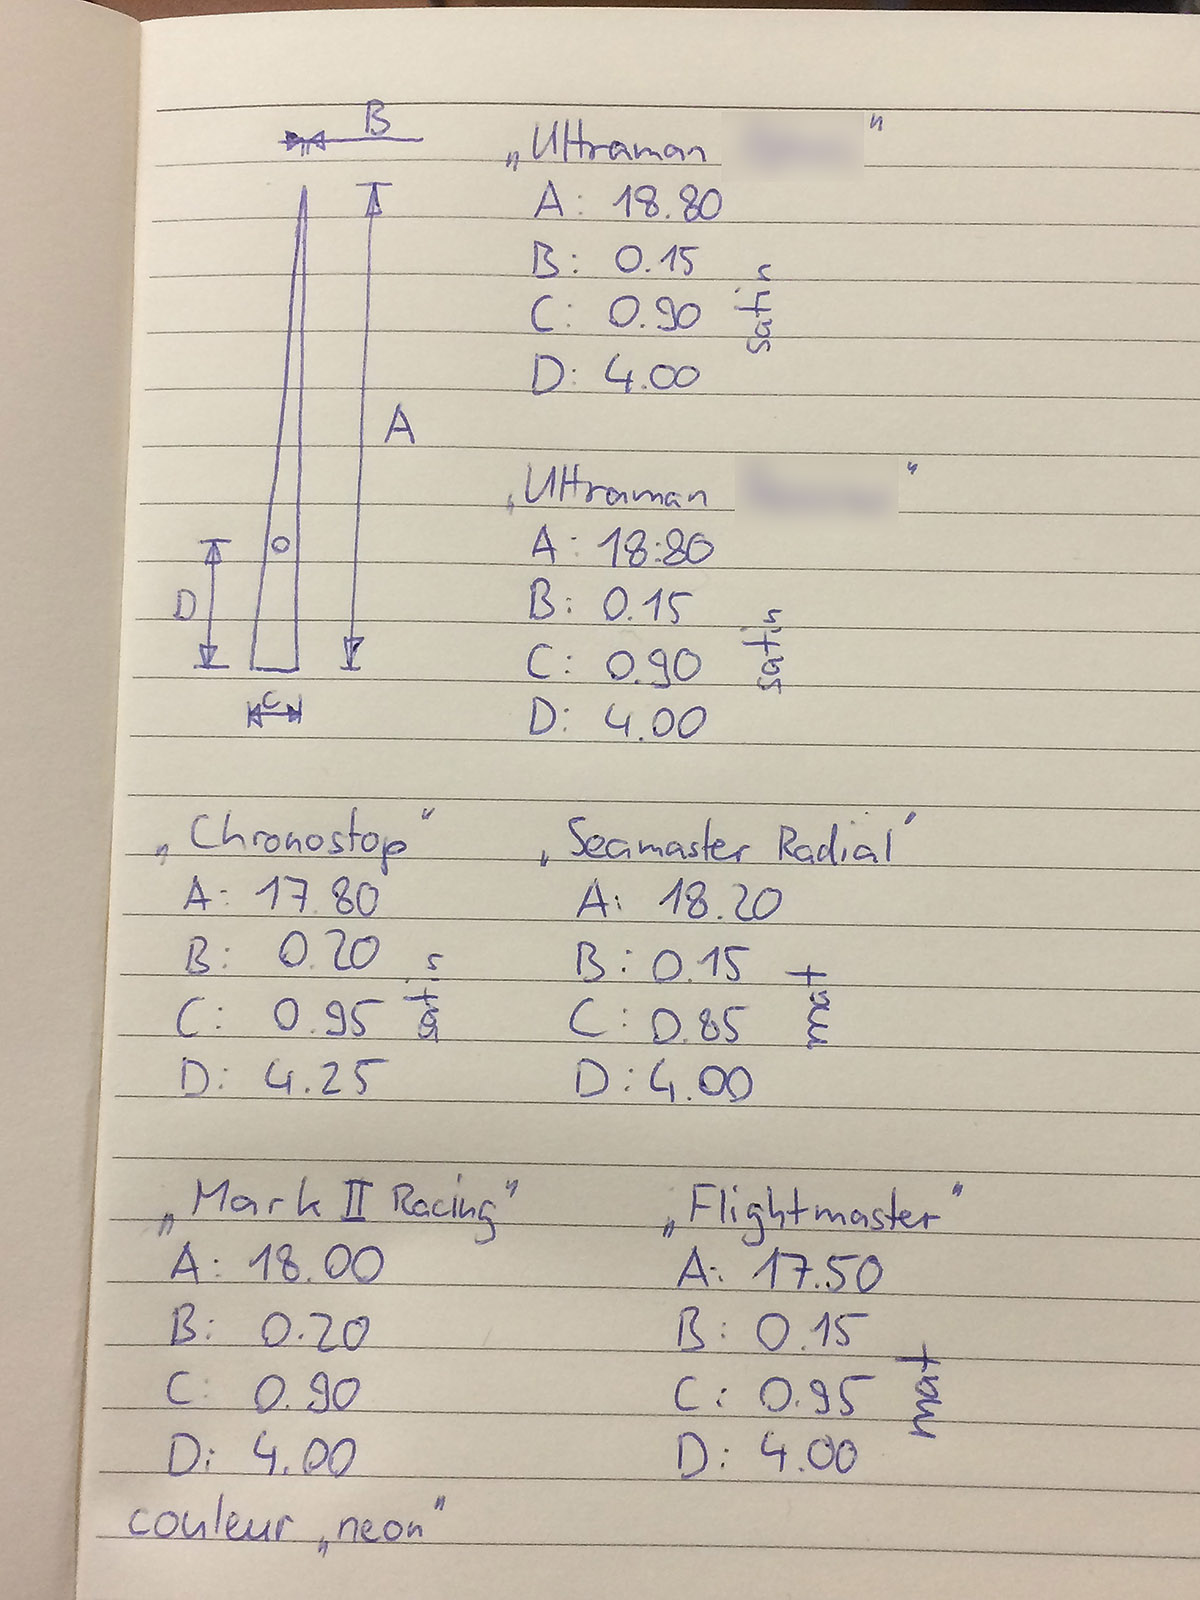 B
A
D
C
„Ultraman "
A: 18.80
B: 0.15
C: 0.90
D: 4.00
satin
„Ultraman "
A: 18.80
B: 0.15
C: 0.90
D: 4.00
satin
„Chronostop"
A: 17.80
B: 0.20
C: 0.95
D: 4.25
„Seamaster Radial"
A: 18.20
B: 0.15
C: 0.85
D: 4.00
mat
„Mark II Racing"
A: 18.00
B: 0.20
C: 0.90
D: 4.00
couleur „neon"
„Flightmaster"
A: 17.50
B: 0.15
C: 0.95
D: 4.00
mat